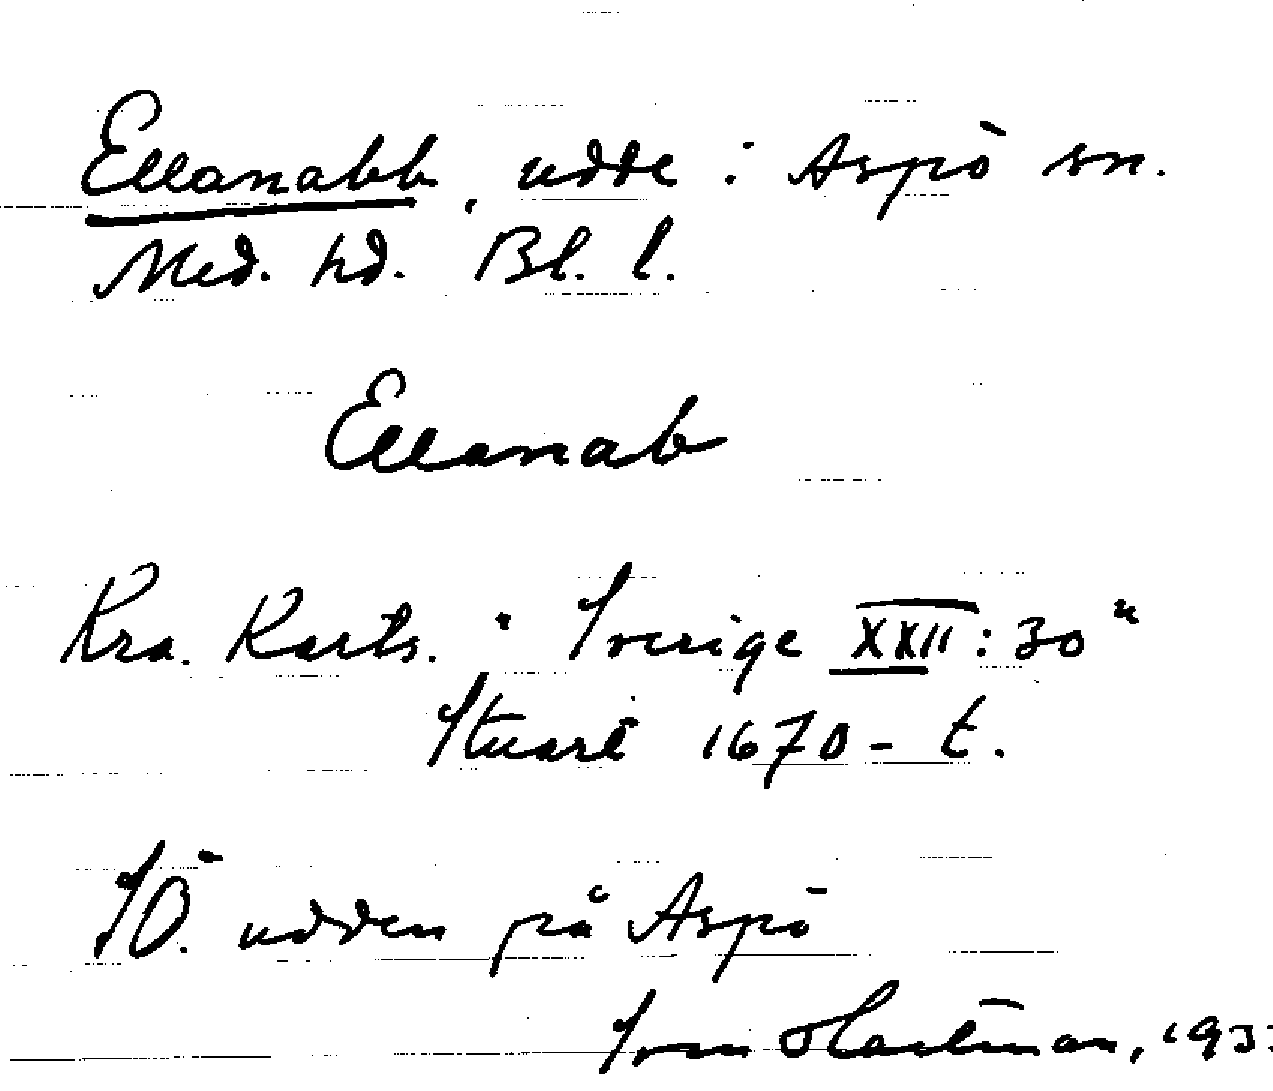 Ellanabb, udde i Aspö sn.
Med. hd. Bl. l.
Ellanab
Kra. Karts. "Sverige XXII:30"
Stuart 1670-t.
SÖ. udden på Aspö
Sven Hartman, 193